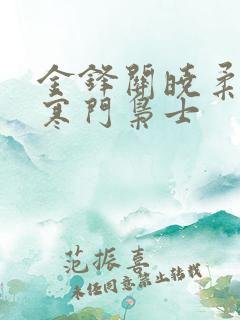 金鋒關曉柔
寒門梟士
范振喜
未经同意禁止转载